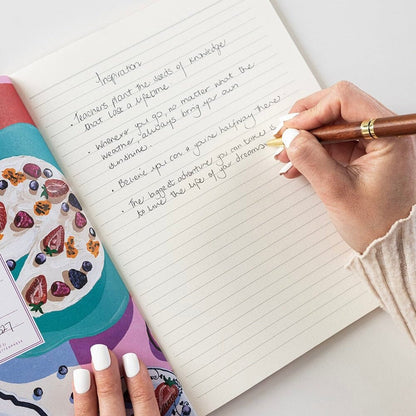 Inspiration
• Teachers plant the seeds of knowledge
that last a lifetime
• Wherever you go, no matter what the
weather, always bring your own
sunshine.
• Believe you can & you're halfway there
• The biggest adventure you can take is
to live the life of your dreams